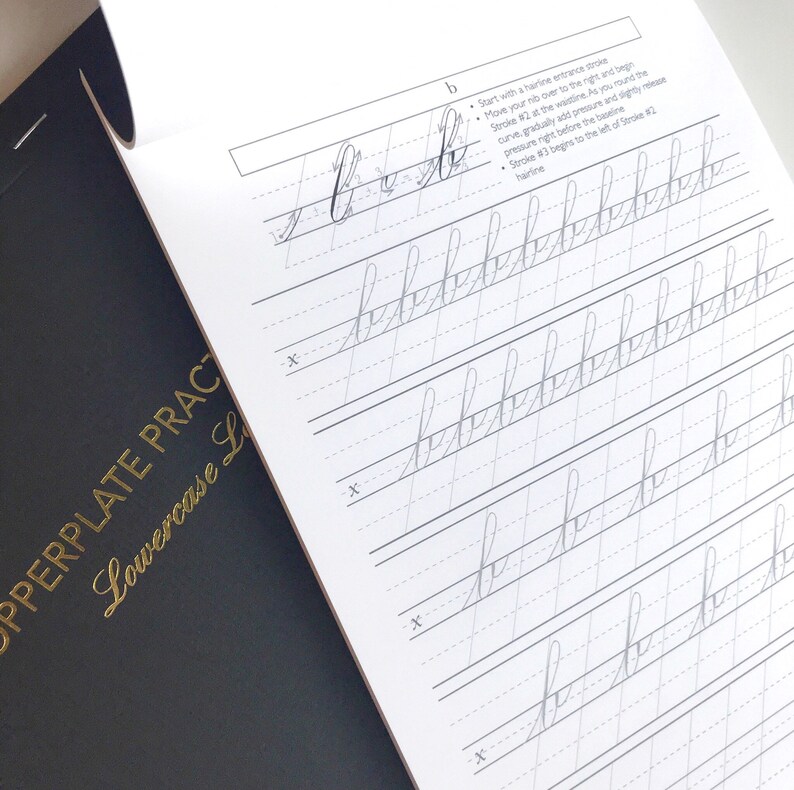 b
• Start with a hairline entrance stroke
• Move your nib over to the right and begin
Stroke #2 at the waistline. As you round the
curve, gradually add pressure and slightly release
pressure right before the baseline
• Stroke #3 begins to the left of Stroke #2
hairline
b b b b b b b b b b
x
b b b b b b b b b
x
b b b b b
x
b b b b
x
OPPERPLATE PRACT
Lowercase